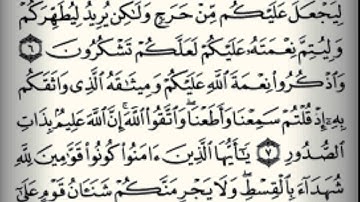 لِيَجْعَلَ عَلَيْكُم مِّنْ حَرَجٍ وَلَٰكِن يُرِيدُ لِيُطَهِّرَكُمْ
وَلِيُتِمَّ نِعْمَتَهُۥ عَلَيْكُمْ لَعَلَّكُمْ تَشْكُرُونَ ٦
وَٱذْكُرُوا۟ نِعْمَةَ ٱللَّهِ عَلَيْكُمْ وَمِيثَٰقَهُ ٱلَّذِى وَاثَقَكُم
بِهِۦٓ إِذْ قُلْتُمْ سَمِعْنَا وَأَطَعْنَا ۖ وَٱتَّقُوا۟ ٱللَّهَ ۚ إِنَّ ٱللَّهَ عَلِيمٌۢ بِذَاتِ
ٱلصُّدُورِ ٧ يَٰٓأَيُّهَا ٱلَّذِينَ ءَامَنُوا۟ كُونُوا۟ قَوَّٰمِينَ لِلَّهِ
شُهَدَآءَ بِٱلْقِسْطِ ۖ وَلَا يَجْرِمَنَّكُمْ شَنَـَٔانُ قَوْمٍ عَلَىٰٓ